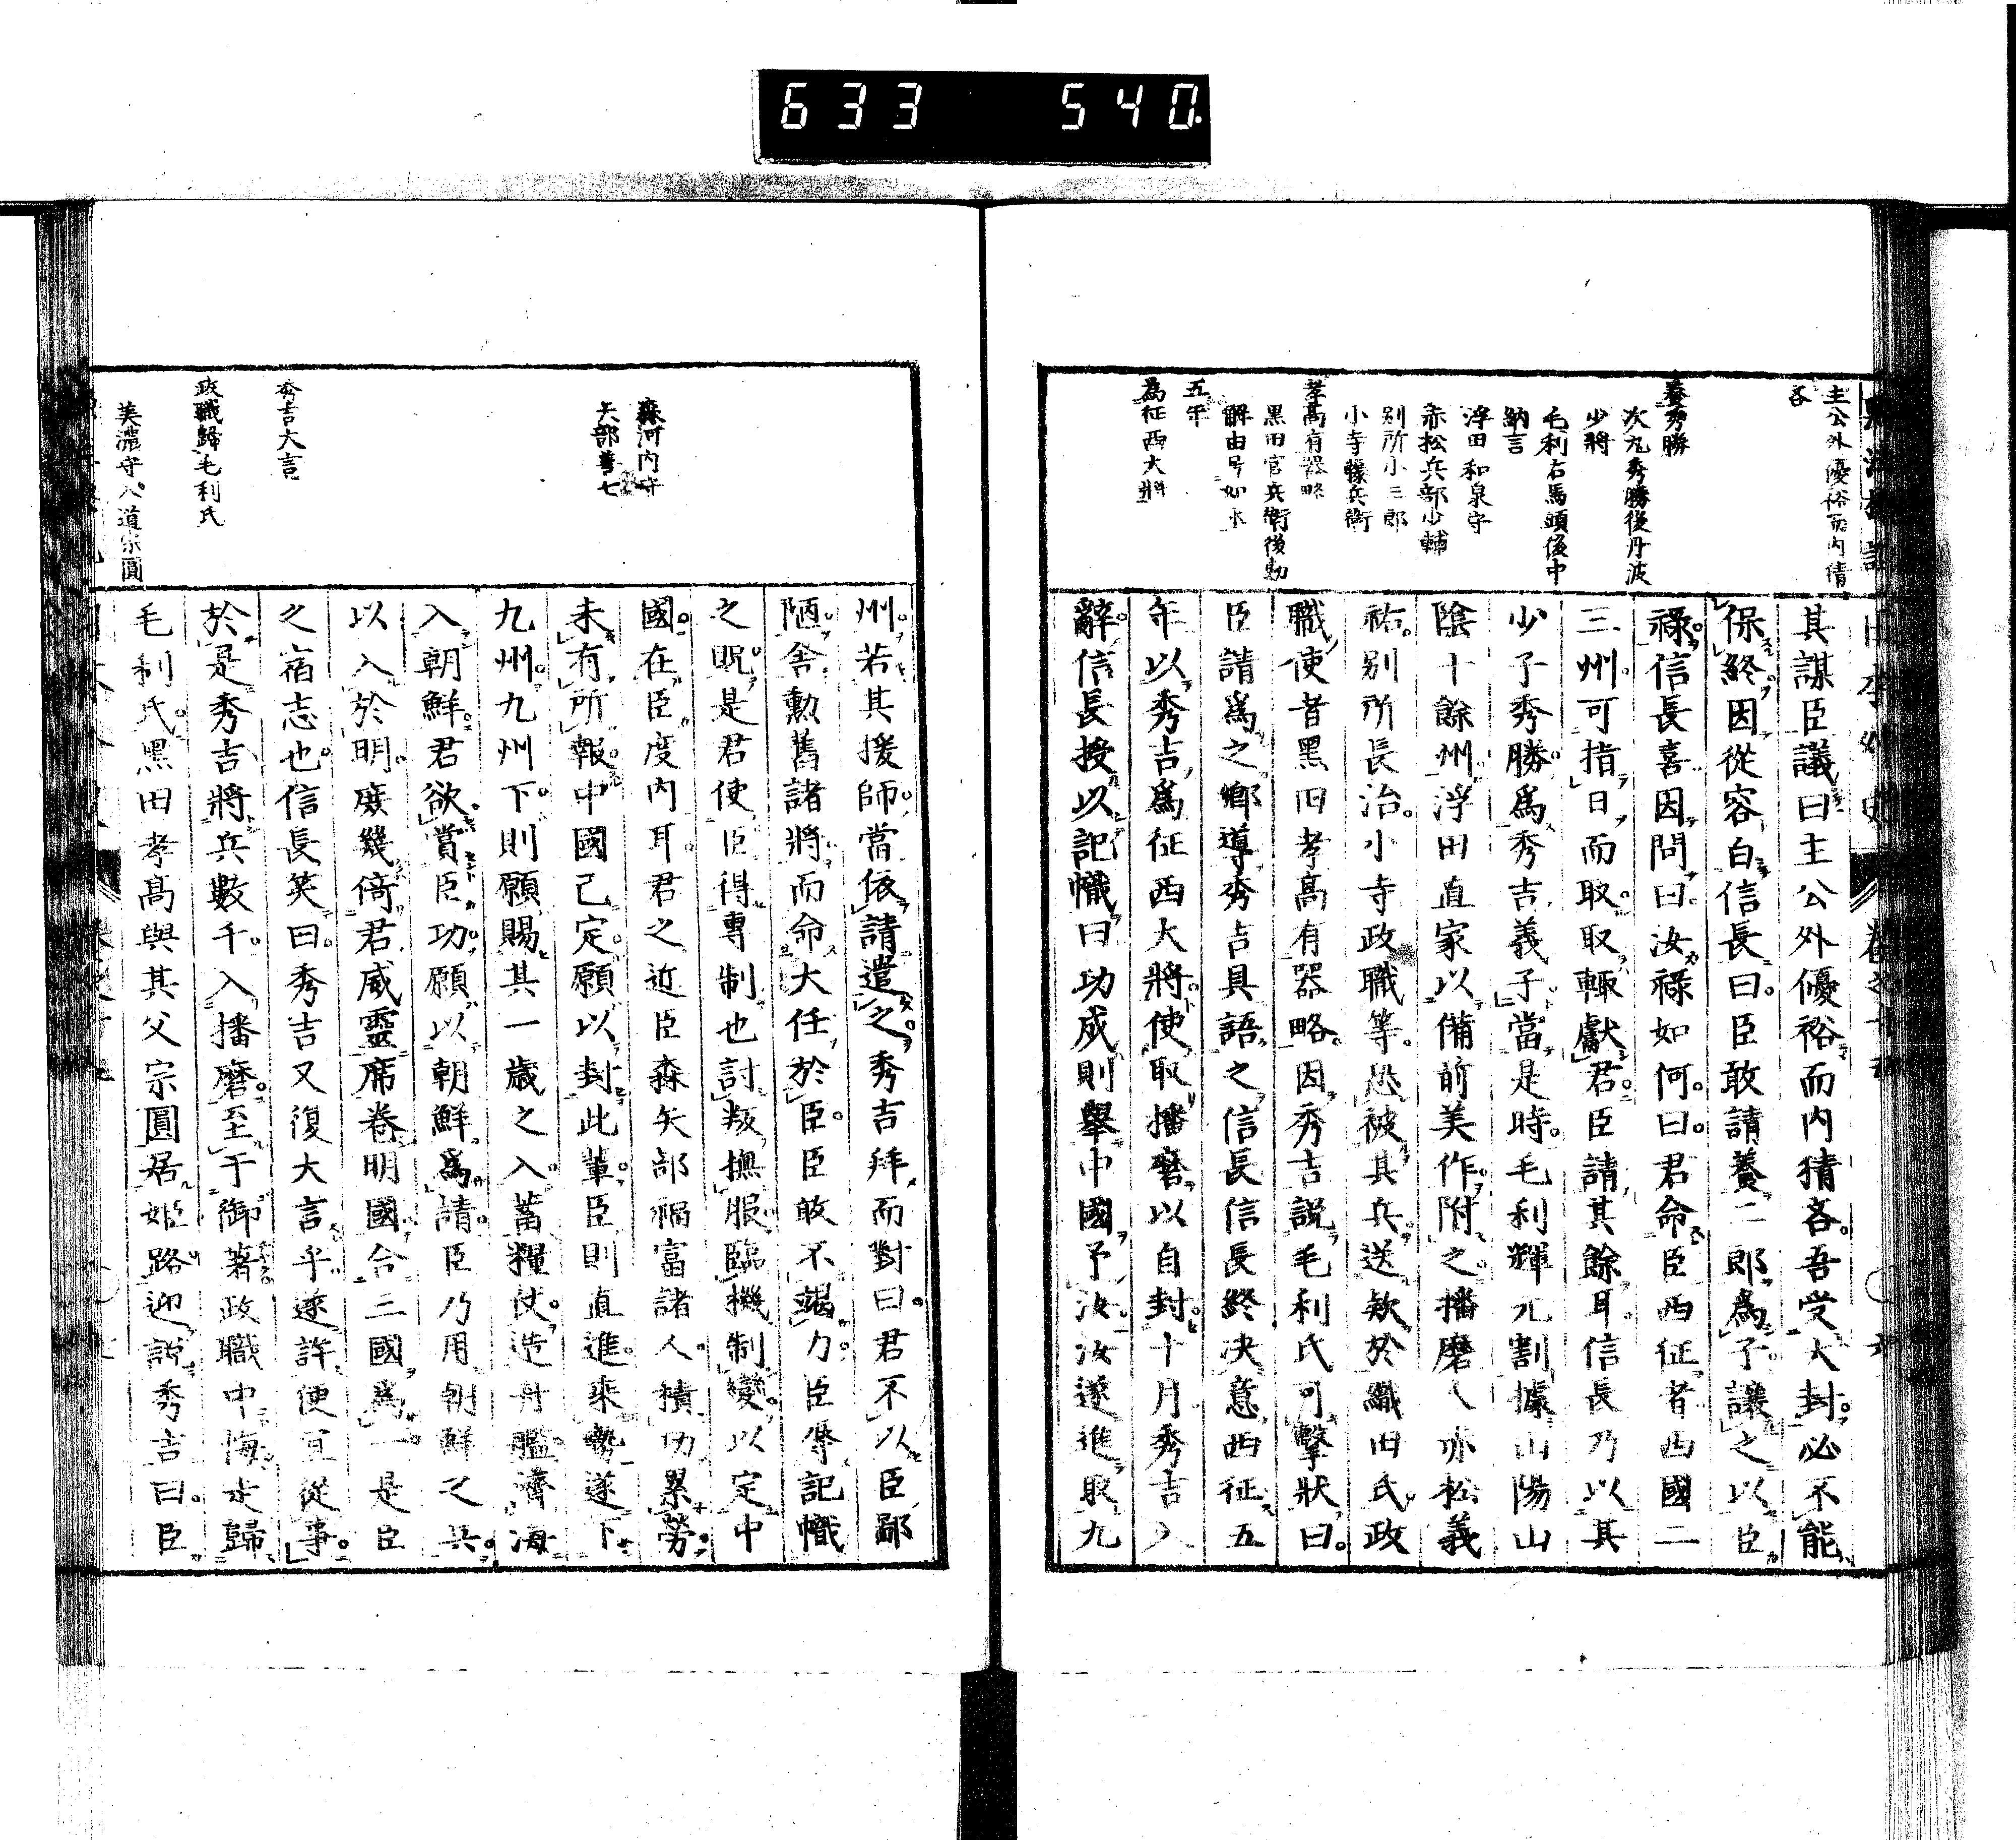 633 540.
主公外優裕而内猜
吝
養秀勝
次丸秀勝後丹波
少將
毛利右馬頭後中
納言
浮田和泉守
赤松兵部少輔
別所小三郎
小寺藤兵衛
孝高有器略
黒田官兵衛後勘
解由号如水
五年
為征西大將
其謀臣議曰主公外優裕而内猜吝吾受大封必不能
保終因從容白信長曰臣敢請養二郎為子讓之以臣
禄信長喜因問曰汝禄如何曰君命臣西征者西國二
三州可指日而取取輙獻君臣請其餘耳信長乃以其
少子秀勝為秀吉義子當是時毛利輝元割據山陽山
陰十餘州浮田直家以備前美作附之播磨人赤松義
祐別所長治小寺政職等恐被其兵送欸於織田氏政
職使者黒田孝高有器略因秀吉説毛利氏可擊狀曰
臣請為之鄉導秀吉具語之信長信長終決意西征五
年以秀吉為征西大將使取播磨以自封十月秀吉入
辭信長授以記幟曰功成則舉中國予汝汝遂進取九
森河内守
矢部善七
秀吉大言
政職歸毛利氏
美濃守入道宗圓
州若其援師當依請遣之秀吉拜而對曰君不以臣鄙
陋舍勲舊諸將而命大任於臣臣敢不竭力臣辱記幟
之貺是君使臣得專制也討叛撫服臨機制變以定中
國在臣度内耳君之近臣森矢部福富諸人積功累勞
未有所報中國已定願以封此輩臣則直進乘勢遂下
九州九州下則願賜其一歲之入蓄糧仗造舟艦濟海
入朝鮮君欲賞臣功願以朝鮮為請臣乃用朝鮮之兵
以入於明庶幾倚君威靈席卷明國合三國為一是臣
之宿志也信長笑曰秀吉又復大言乎遂許便宜從事
於是秀吉將兵數千入播磨至于御著政職中悔走歸
毛利氏黒田孝高與其父宗圓居姫路迎説秀吉曰臣